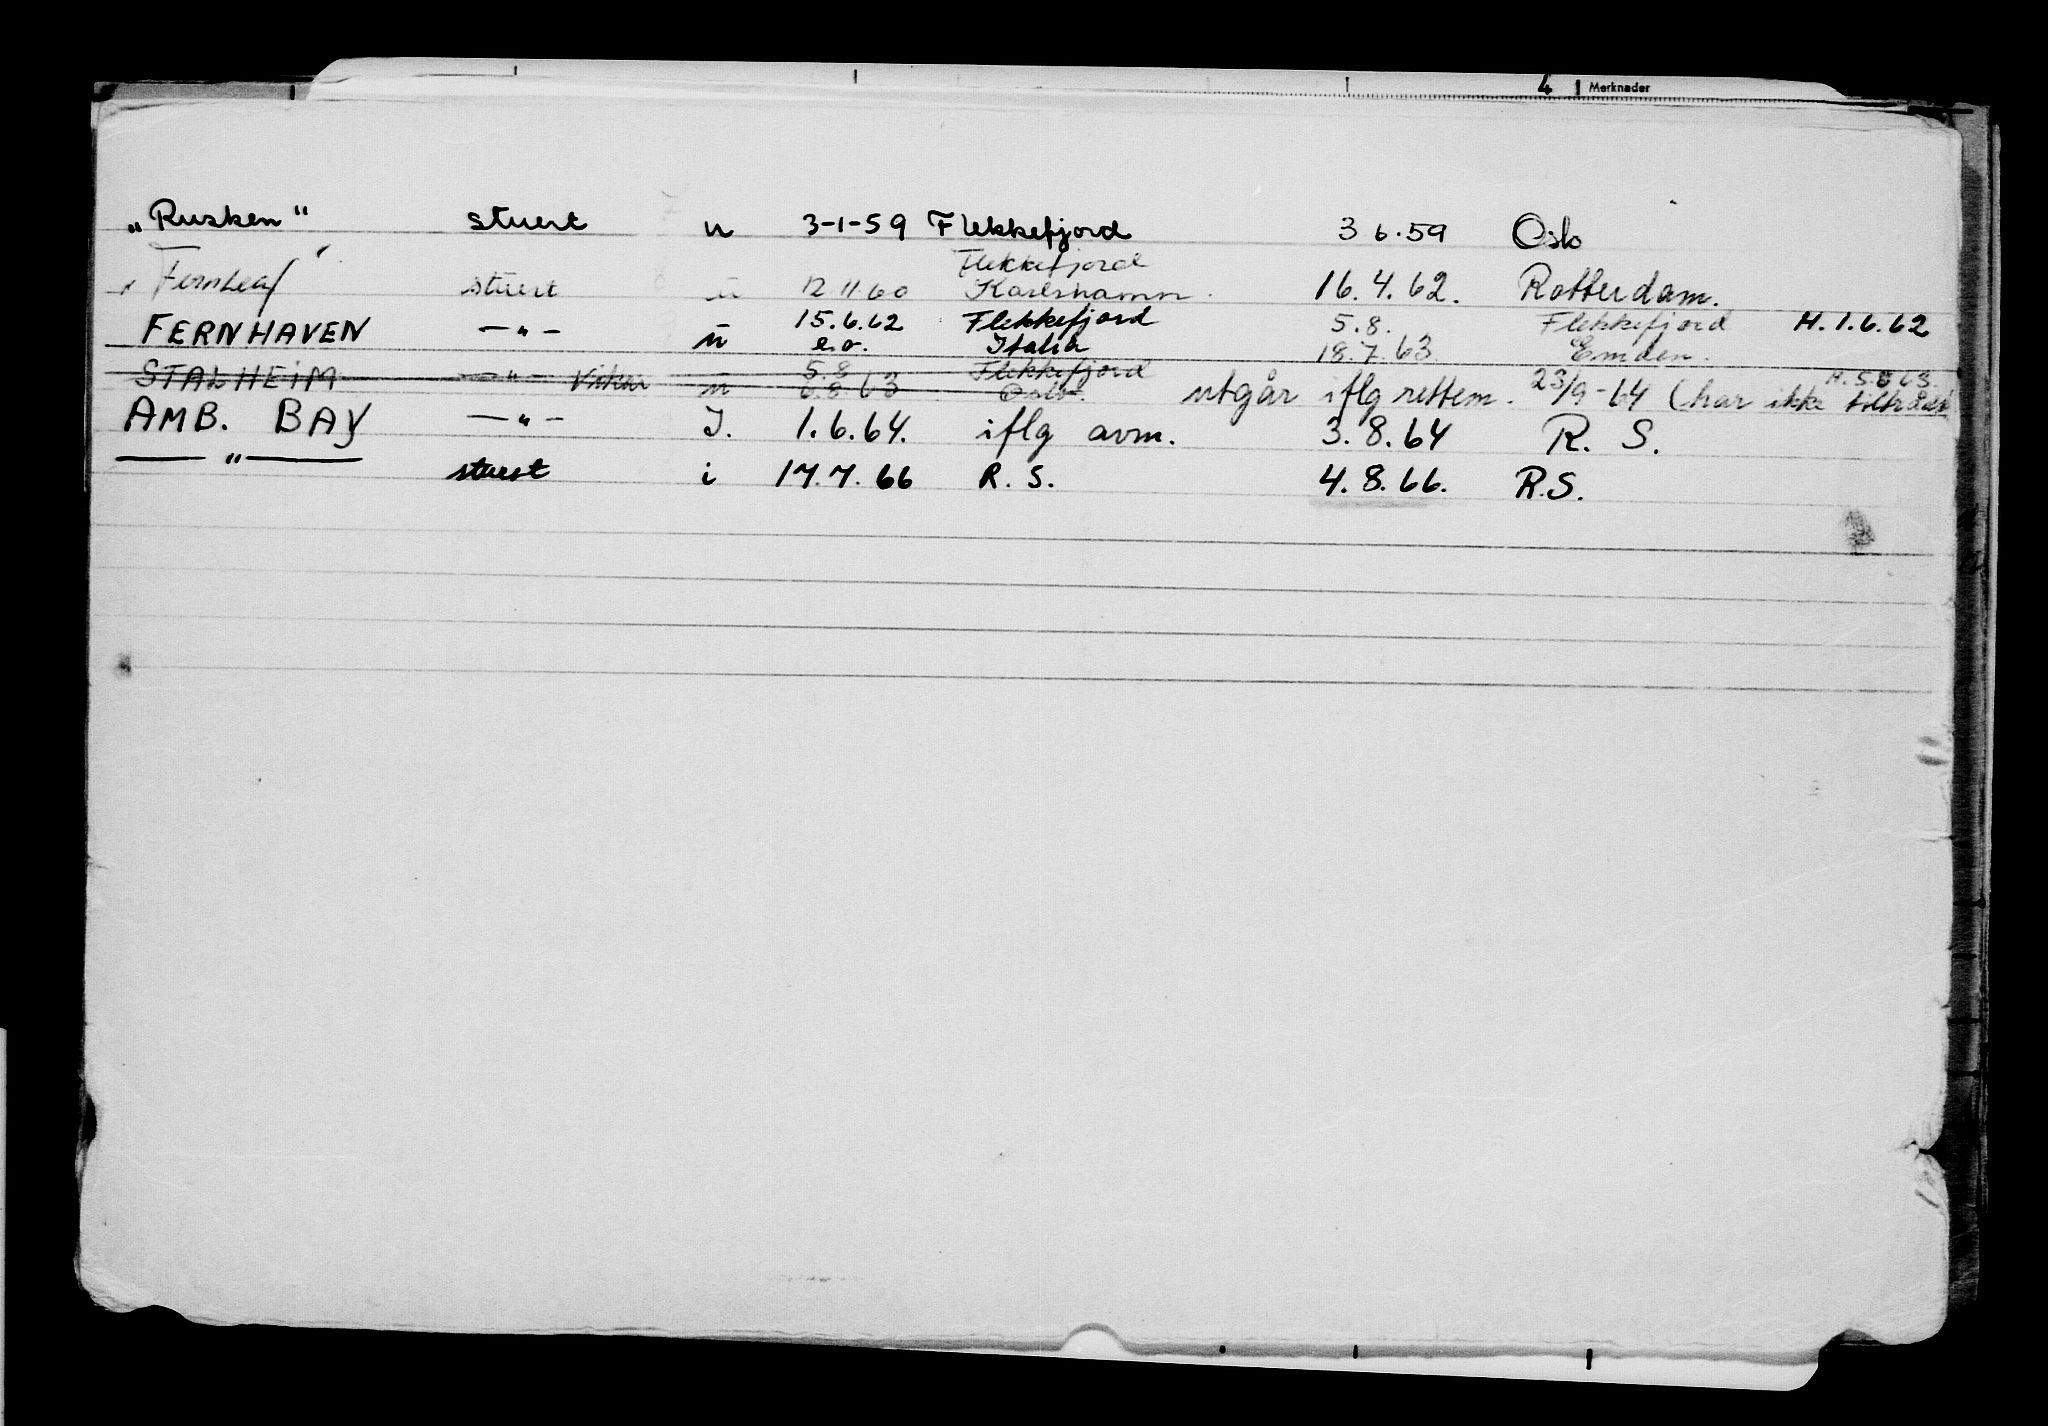 4 Merknader
„Rusken" stuert u 3-1-59 Flekkefjord 3 6.59 Oslo
Flekkefjord
Fernleaf stuert u 12 11.60 Karlshamn. 16.4.62. Rotterdam.
FERNHAVEN —"— u 15.6.62 Flekkefjord 5.8. Flekkefjord H.1.6.62
e.o. Italia 18.7.63 Emden.
5.8 Flekkefjord H.5.8 63.
STALHEIM —"— Vikar u 6.8.63 Oslo. utgår iflg rettem. 23/9-64 (har ikke tiltrådt
AMB. BAY —"— I. 1.6.64. iflg avm. 3.8.64 R. S.
——"—— stuert i 17.7.66 R. S. 4.8.66. R.S.